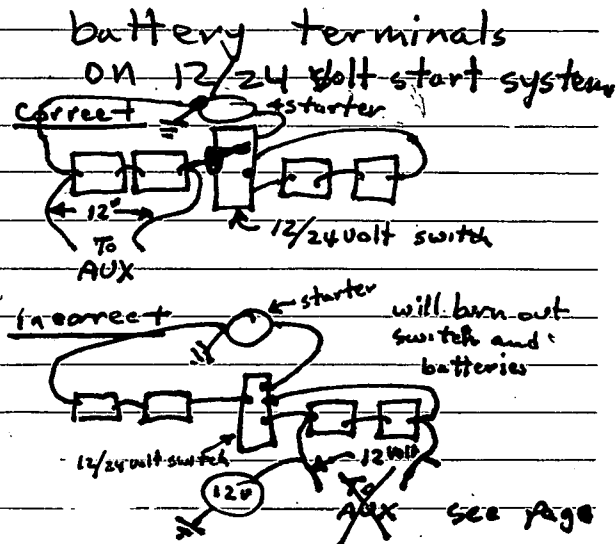 battery terminals
on 12 24 volt start system
Correct
starter
12v
To
AUX
12/24 volt switch
Incorrect
starter
will burn out
switch and
batteries
12/24 volt switch
12 volt
12v
To
AUX see page